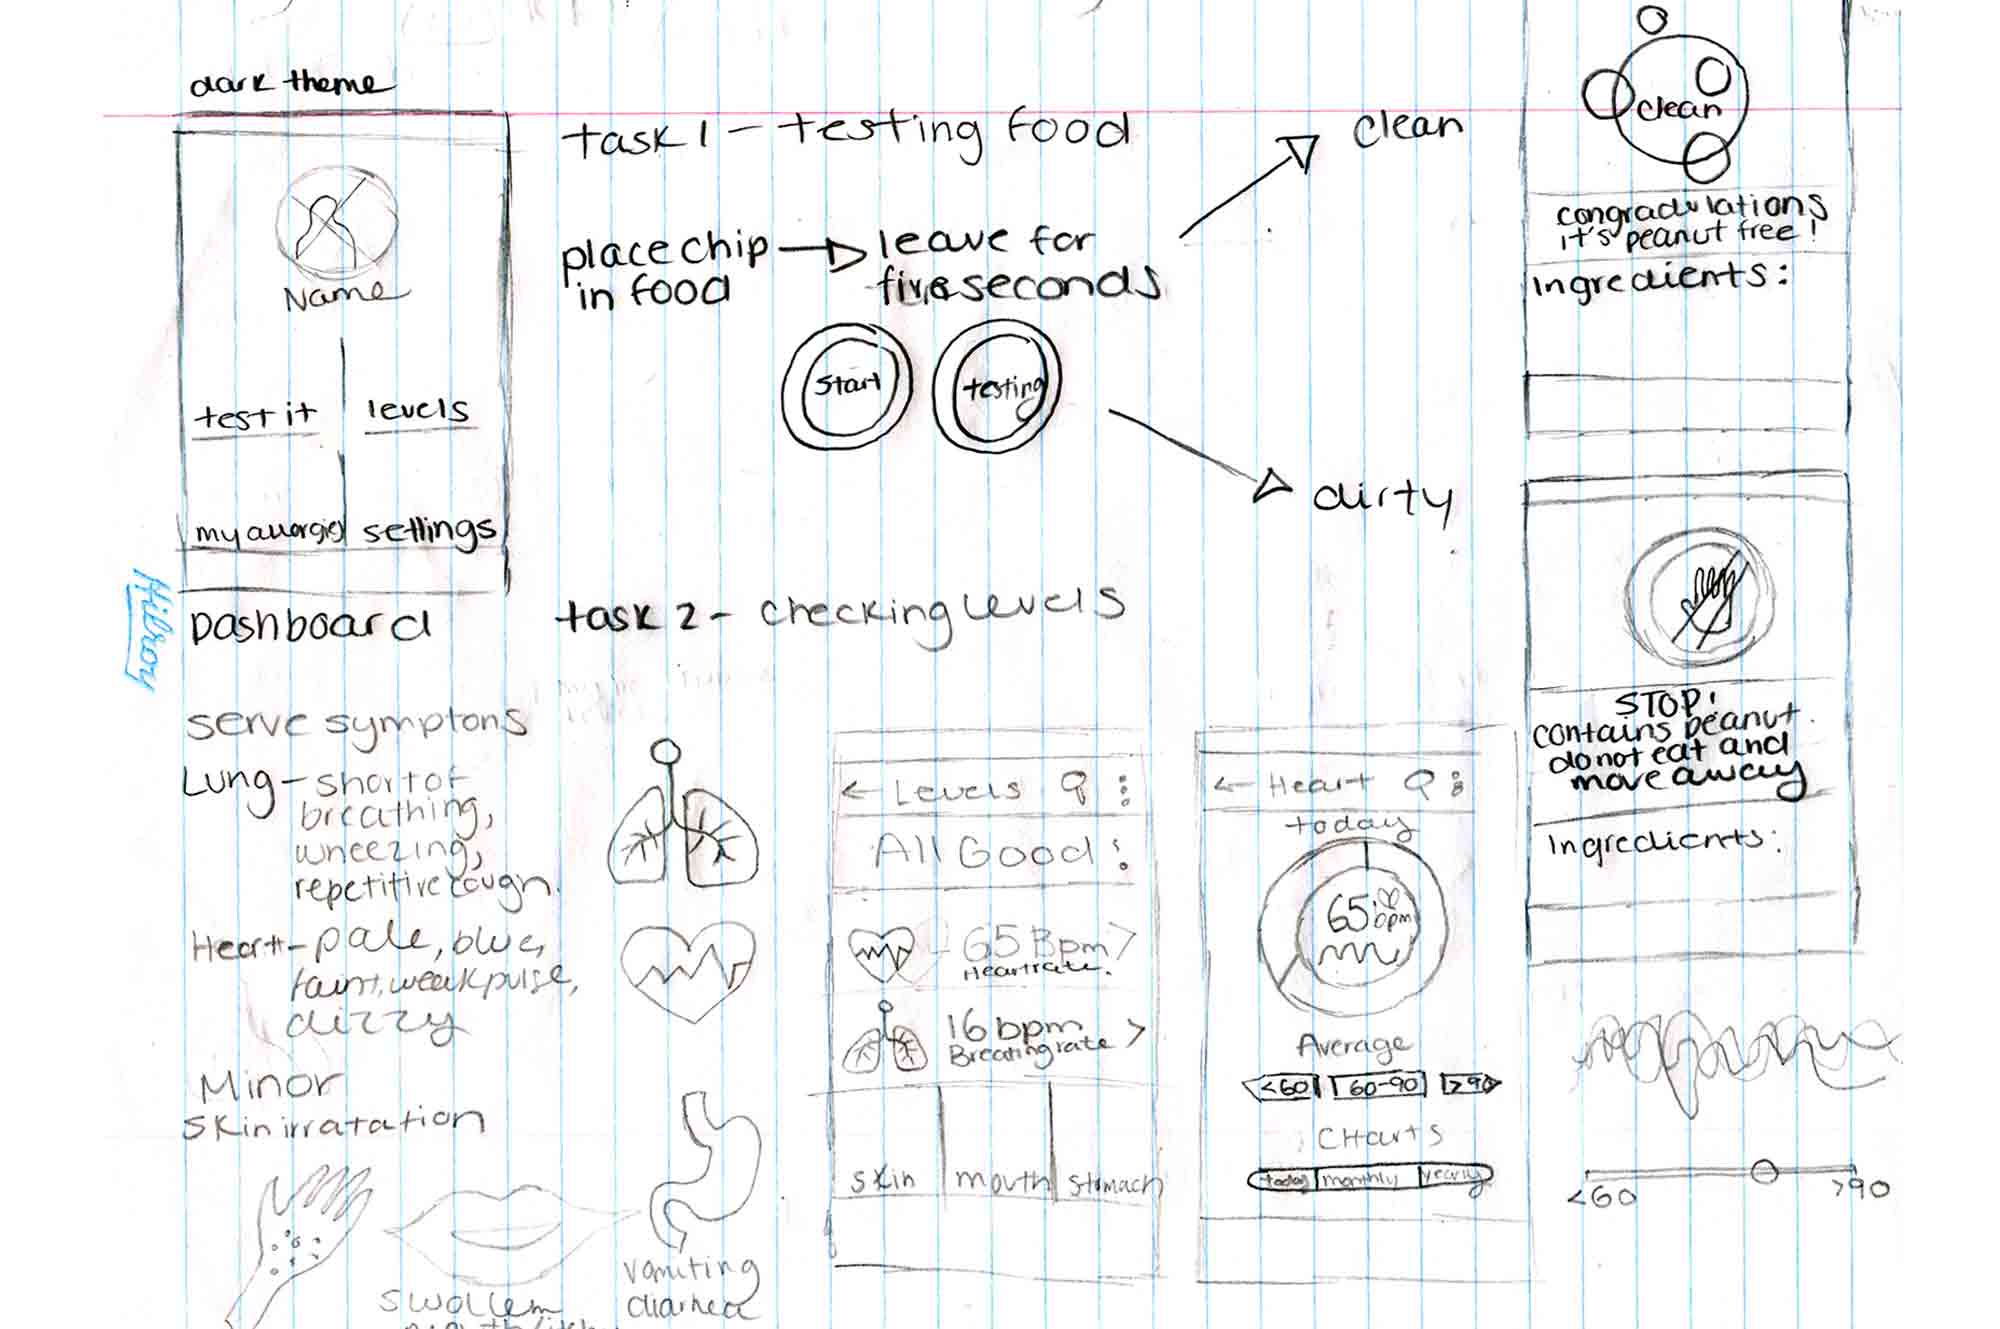 dark theme
Name
test it
levels
my allergies
settings
Dashboard
Hilroy
task 1 - testing food
place chip
in food
leave for
five seconds
Start
testing
clean
dirty
clean
congradulations
it's peanut free!
Ingredients:
STOP!
contains peanut.
do not eat and
move away
Ingredients:
task 2 - checking levels
serve symptons
Lung - short of
breathing,
wheezing,
repetitive cough.
Heart - pale, blue,
faint, weak pulse,
dizzy
Minor
skin irratation
swollen
vomiting
diarhea
← Levels
All Good
65 Bpm >
Heartrate.
16 bpm >
Breating rate
skin
mouth
stomach
← Heart
today
65 bpm
Average
<60
60-90
>90
Charts
today
monthly
yearly
<60
>90